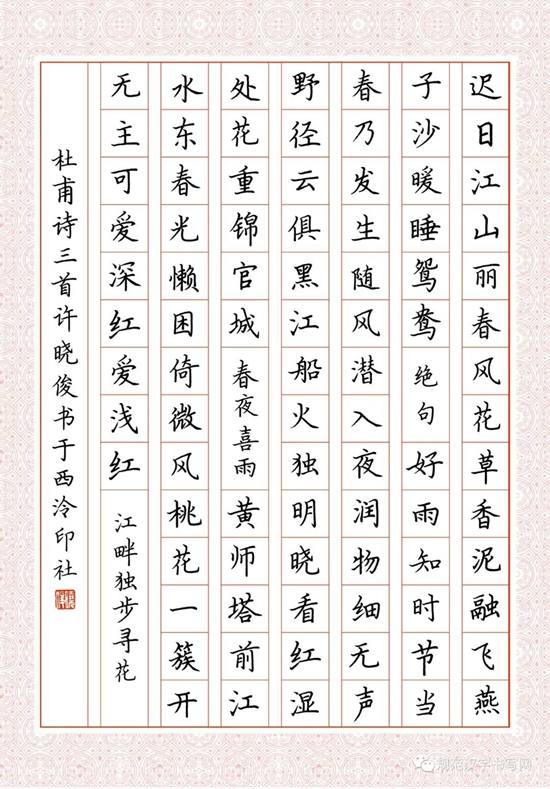 迟日江山丽春风花草香泥融飞燕
子沙暖睡鸳鸯绝句好雨知时节当
春乃发生随风潜入夜润物细无声
野径云俱黑江船火独明晓看红湿
处花重锦官城春夜喜雨黄师塔前江
水东春光懒困倚微风桃花一簇开
无主可爱深红爱浅红江畔独步寻花
杜甫诗三首许晓俊书于西泠印社
规范汉字书写网